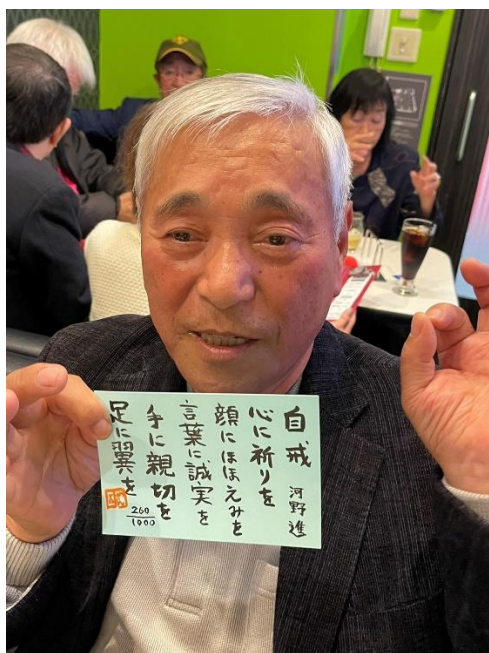 自戒 河野進
心に祈りを
顔にほほえみを
言葉に誠実を
手に親切を
足に翼を
260
1000